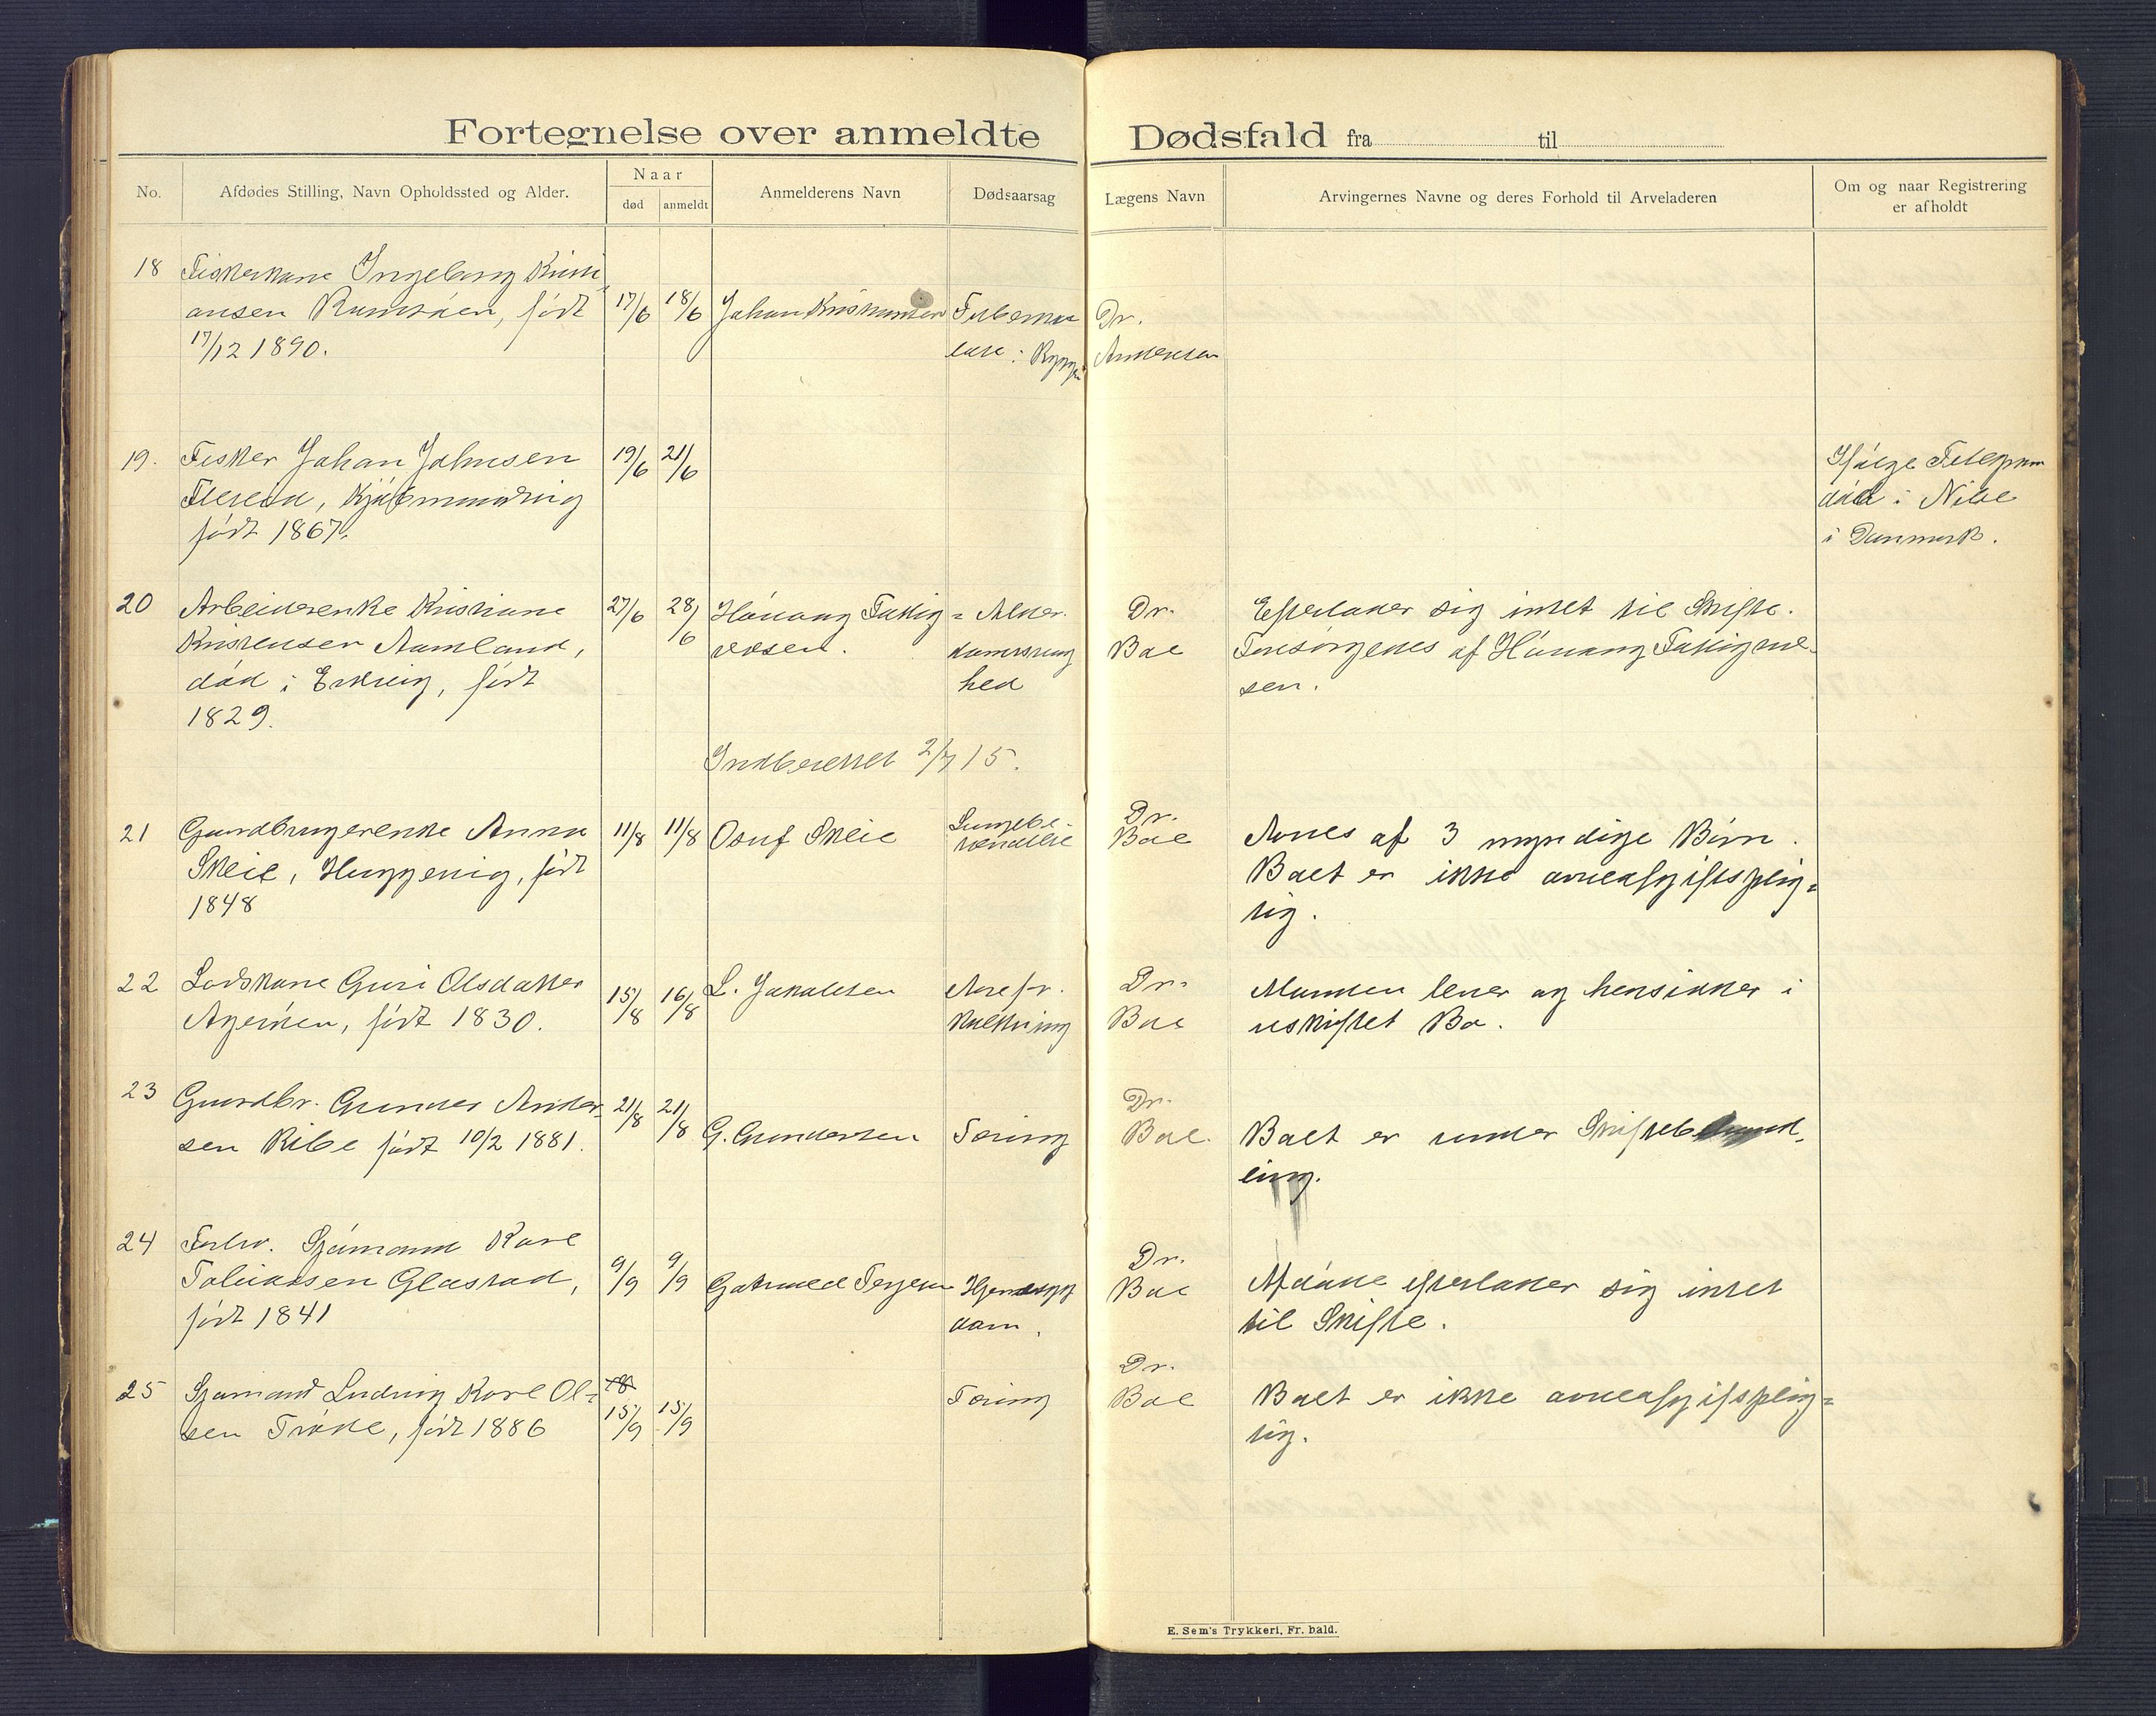 Fortegnelse over anmeldte Dødsfald fra til
No.
Afdødes Stilling, Navn Opholdssted og Alder.
Naar
død
anmeldt
Anmelderens Navn
Dødsaarsag
Lægens Navn
Arvingernes Navne og deres Forhold til Arveladeren
Om og naar Registrering
er afholdt
18
Fiskerkone Ingeborg Kristi-
ansen Ramsøen, født
17/12 1890.
17/6
18/6
Johan Kristiansen
Tuberku
lose i Ryggen
Dr.
Andersen
19.
Fisker Johan Johnsen
født 1867.
19/6
21/6
Ifølge Telegram
død i Nibe
i Danmark.
20
Arbeiderenke Kristiane
Kristensen Aamland,
død i Eikeig, født
1829.
27/6
28/6
Høvaag Fattig=
væsen.
Alder
domssvag
hed
Dr.
Boe
Efterlader sig intet til Skifte.
Forsørgedes af Høvaag Fattigvæ-
sen.
Indberettet 2/7 15.
21
Gaardbrugerenke Anna
Skeie, Hæggevig, født
1848
11/8
11/8
Osuf Skeie
Lungebe-
tændelse
Dr.
Boe
Arves af 3 myndige Børn.
Boet er ikke arveafgiftsplig=
tig.
22
Lodskone Guri Olsdatter
Agerøen, født 1830.
15/8
16/8
L. Jakobsen
Aarefr.
kalkning
Dr.
Boe
Manden lever og hensidder i
uskiftet Bo.
23
Gaardbr. Gunder Ander-
sen Ribe født 10/2 1881.
21/8
21/8
G. Gundersen
Tæring
Dr.
Boe.
Boet er under Skiftebehand-
ling.
24
Forhv. Sjømand Karl
Tobiassen Glastad,
født 1841
9/9
9/9
Gabriel Terjesen
Hjertesyg
dom.
Dr.
Boe
Afdøde efterlader sig intet
til Skifte.
25
Sjømand Ludvig Karl Ol=
sen Trøe, født 1886
15/9
15/9
Tæring
Dr.
Boe
Boet er ikke arveafgiftsplig=
tig.
E. Sem's Trykkeri, Fr. hald.